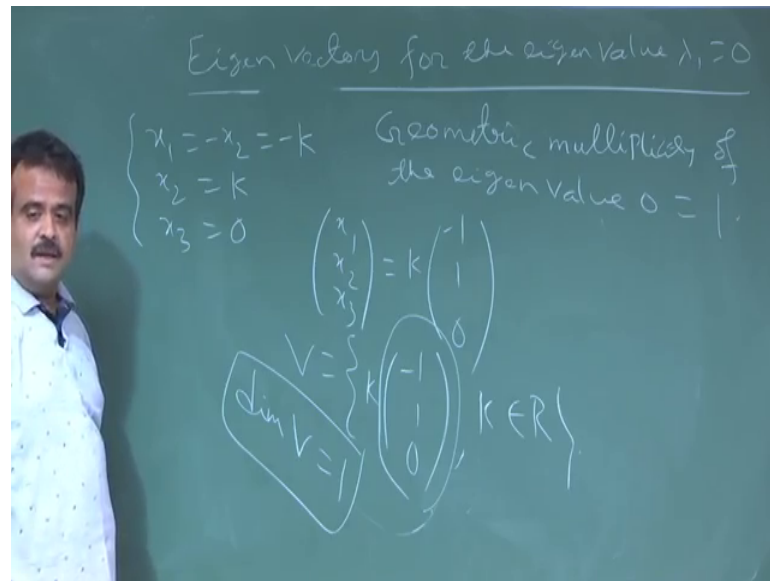 Eigen Vectors for the eigen value λ₁ = 0
x₁ = -x₂ = -k
x₂ = k
x₃ = 0
Geometric multiplicity of
the eigen value 0 = 1.
(x₁ x₂ x₃) = k (-1 1 0)
V = { k (-1 1 0), K ∈ R }
dim V = 1